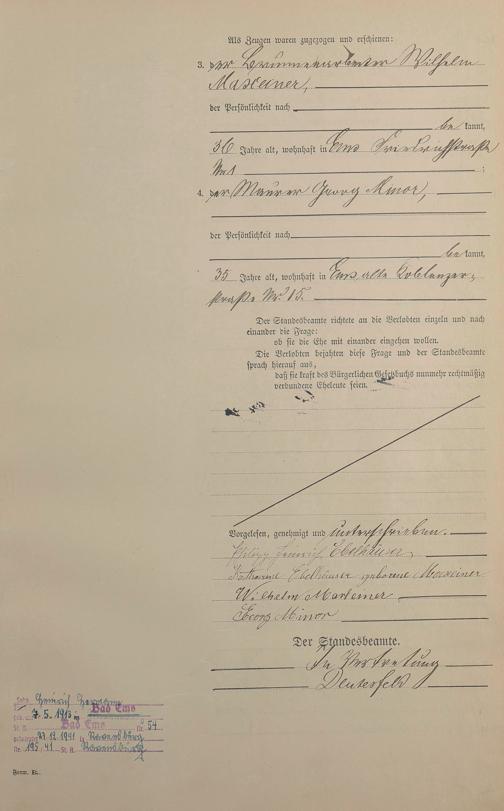 Als Zeugen waren zugezogen und erschienen:
3. der Brunnenarbeiter Wilhelm
Maxeiner,
der Persönlichkeit nach
be kannt,
36 Jahre alt, wohnhaft in Ems Friedrichstraße
Nr 1 ;
4. der Maurer Georg Minor,
der Persönlichkeit nach
be kannt,
35 Jahre alt, wohnhaft in Ems, alte Coblenzer-
straße Nr 15.
Der Standesbeamte richtete an die Verlobten einzeln und nach
einander die Frage:
ob sie die Ehe mit einander eingehen wollen.
Die Verlobten bejahten diese Frage und der Standesbeamte
sprach hierauf aus,
daß sie kraft des Bürgerlichen Gesetzbuchs nunmehr rechtmäßig
verbundene Eheleute seien.
Vorgelesen, genehmigt und unterschrieben.
Heinrich Ebelhäuser
Katharina Ebelhäuser geborene Maxeiner
Wilhelm Maxeiner
Georg Minor
Der Standesbeamte.
In Vertretung
Sohn Heinrich Hermann
7. 5. 1913 in Bad Ems
St. A. Bad Ems Nr. 54
27. 12. 1941 in Ravensburg
Nr. 195/41 St. A. Ravensburg
Form. B.